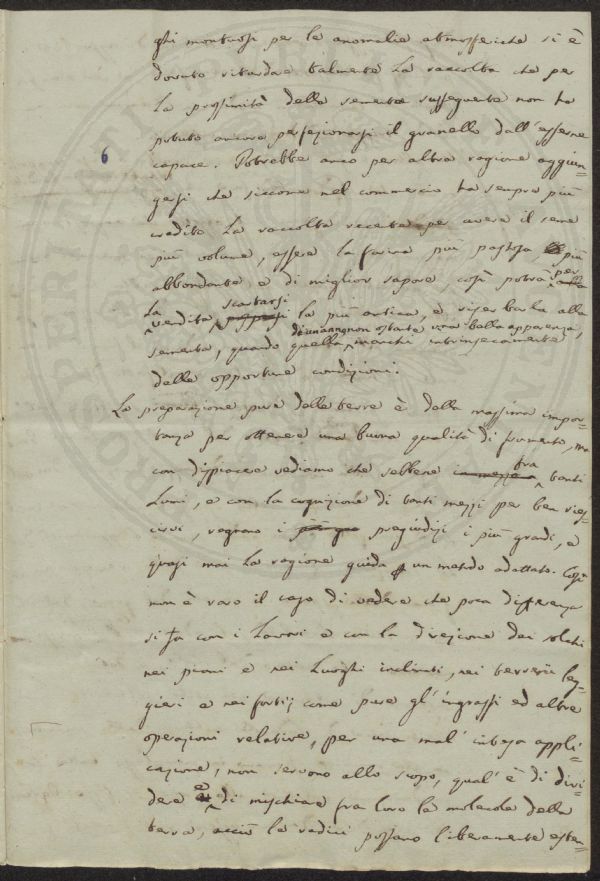 ghi montuosi per le anomalie atmosferiche si è
dovuto ritardare talmente la raccolta che per
la prossimità della semente susseguente non ha
potuto ancora perfezionarsi il granello dall'esserne
6
capace. Potrebbe anco per altra ragione aggiun=
gersi che siccome nel commercio ha sempre più
credito la raccolta recente per avere il seme
più volume, essere la farina più pastosa, più
abbondante e di miglior sapore, così potrà per
la vendita scartarsi la più antica, e riserbarla alla
sementa, quando quella non ostante una bella apparenza, manchi intrinsecamente
delle opportune condizioni.
La preparazione pure delle terre è della massima impor=
tanza per ottenere una buona qualità di frumento, ma
con dispiacere vediamo che sebbene fra tanti
Lumi, e con la cognizione di tanti mezzi per ben ries=
cirvi, regnano i pregiudizi i più grandi, e
quasi mai la ragione guida un metodo adattato. Così
non è raro il caso di vedere che poca differenza
si fa con i Lavori e con la direzione dei solchi
nei piani e nei Luoghi inclinati, nei terreni leg=
gieri e nei fortij come pure gl'ingrassi ed altre
operazioni relative, per una mal' intesa appli=
cazione, non servono allo scopo, qual' è di divi=
dere e di mischiare fra loro le molecole della
terra, acciò le radici possano liberamente esten=